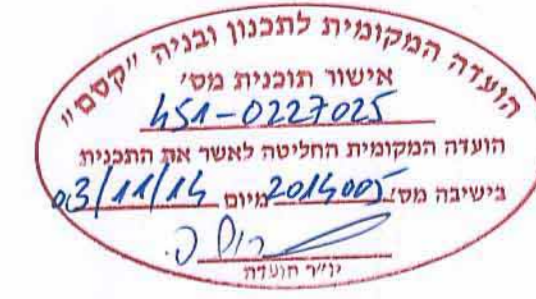 הועדה המקומית לתכנון ובניה "קסם"
אישור תוכנית מס'
451-0227025
הועדה המקומית החליטה לאשר את התכנית
בישיבה מס' 2014005 מיום 03/11/14
יו"ר הועדה